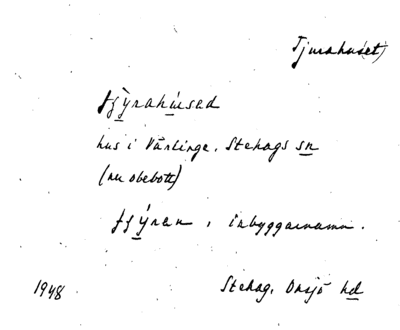 Tjurahuset)
tjýrahúsed
hus i Värlinge, Stehags sn
(nu obebott)
tjýren, inbyggarnamn.
1948 Stehag, Onsjö hd